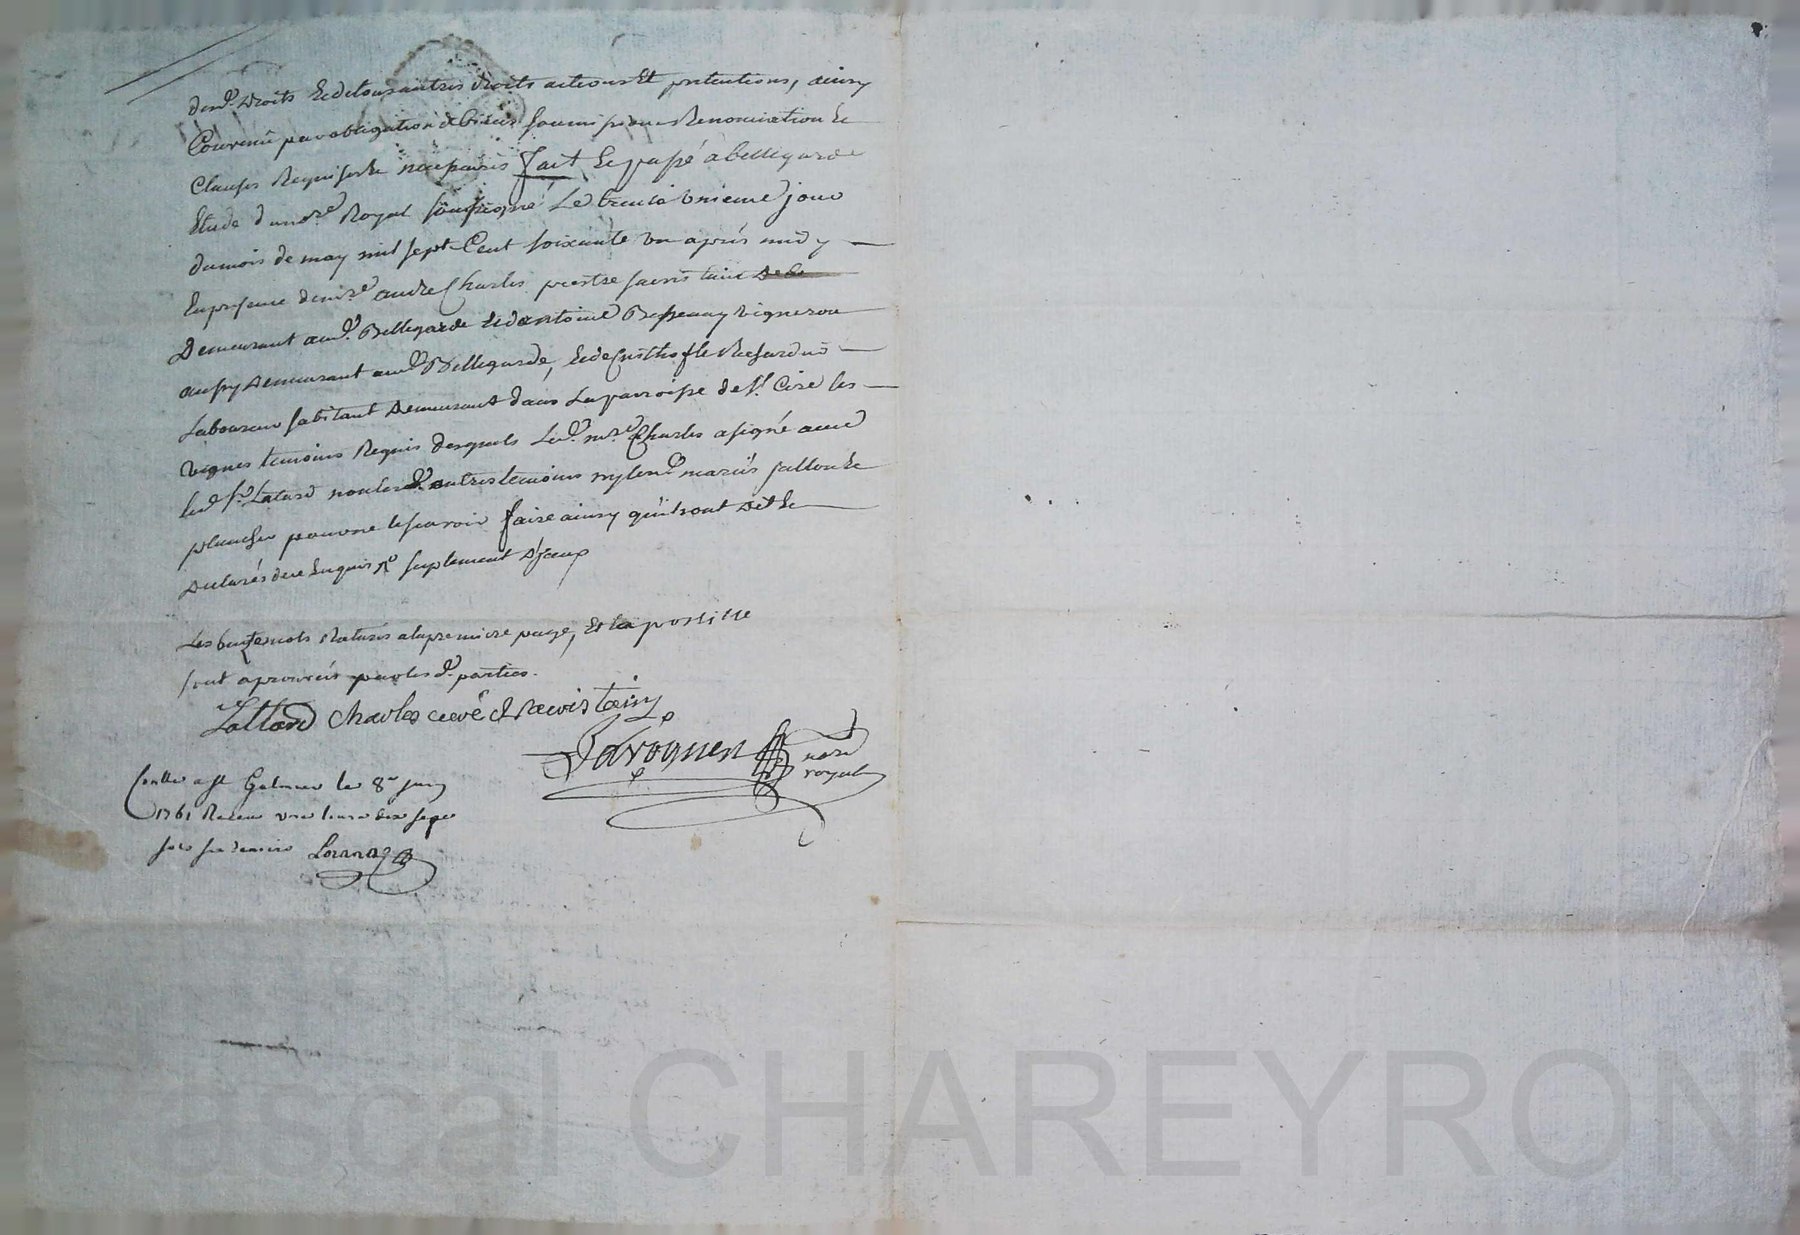 desd. Droits Et de tous autres droits actions Et pretentions, ainsy
Convenu par obligation de biens soumissions Renonciation Et
Clauses Requises Et necessaires fait Et passé a bellegarde
Etude du nore Royal soussigné Le trente Unieme jour
du mois de may mil sept Cent soixante un après midy
En presence de mre andré Charles prestre sacristain
Demeurant aud. Bellegarde Et d'antoine Bessenay vigneron
aussy demeurant aud. Bellegarde, Et de
Laboureur habitant demeurant dans La parroisse de st. Cire les
vignes temoins Requis desquels Led. mre Charles a signé avec
led. sr. Latard non les d. autres temoins ny lesd. mariés
plancher pour ne le scavoir faire ainsy qu'ils ont dit Et
declarés de ce Enquis
Les mots Raturés a la premiere page, Et la postille
sont aprouvés par les d. parties.
Lattard Charles curé & sacristain
Laroquen nore
royal
Conllé a st Galmier le 8 juin
1761 Receu une livre dix sept
sols six deniers
ascal CHAREYRON